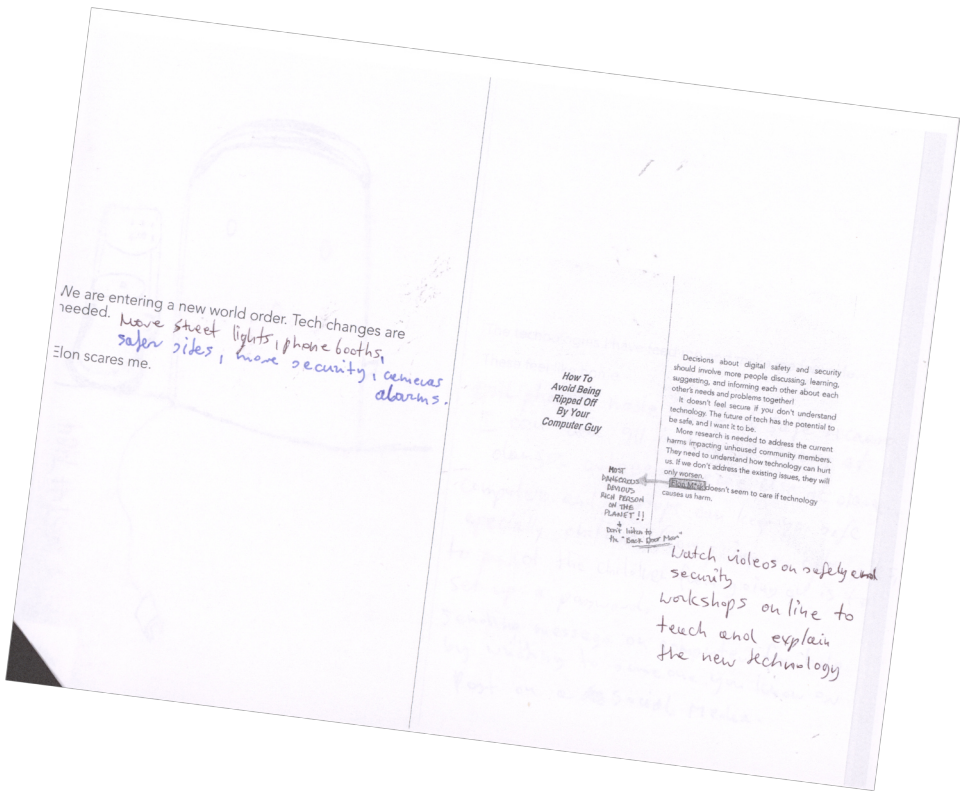 We are entering a new world order. Tech changes are
needed.
More street lights, phone booths,
safer sites, more security, cameras
alarms.
Elon scares me.
How To
Avoid Being
Ripped Off
By Your
Computer Guy
Decisions about digital safety and security
should involve more people discussing, learning,
suggesting, and informing each other about each
other's needs and problems together!
It doesn't feel secure if you don't understand
technology. The future of tech has the potential to
be safe, and I want it to be.
More research is needed to address the current
harms impacting unhoused community members.
They need to understand how technology can hurt
us. If we don't address the existing issues, they will
only worsen.
doesn't seem to care if technology
causes us harm.
MOST
DANGEROUS
DEVIOUS
RICH PERSON
ON THE
PLANET!!
Don't listen to
the "Back Door Man"
Watch videos on safety and
security
workshops on line to
teach and explain
the new technology